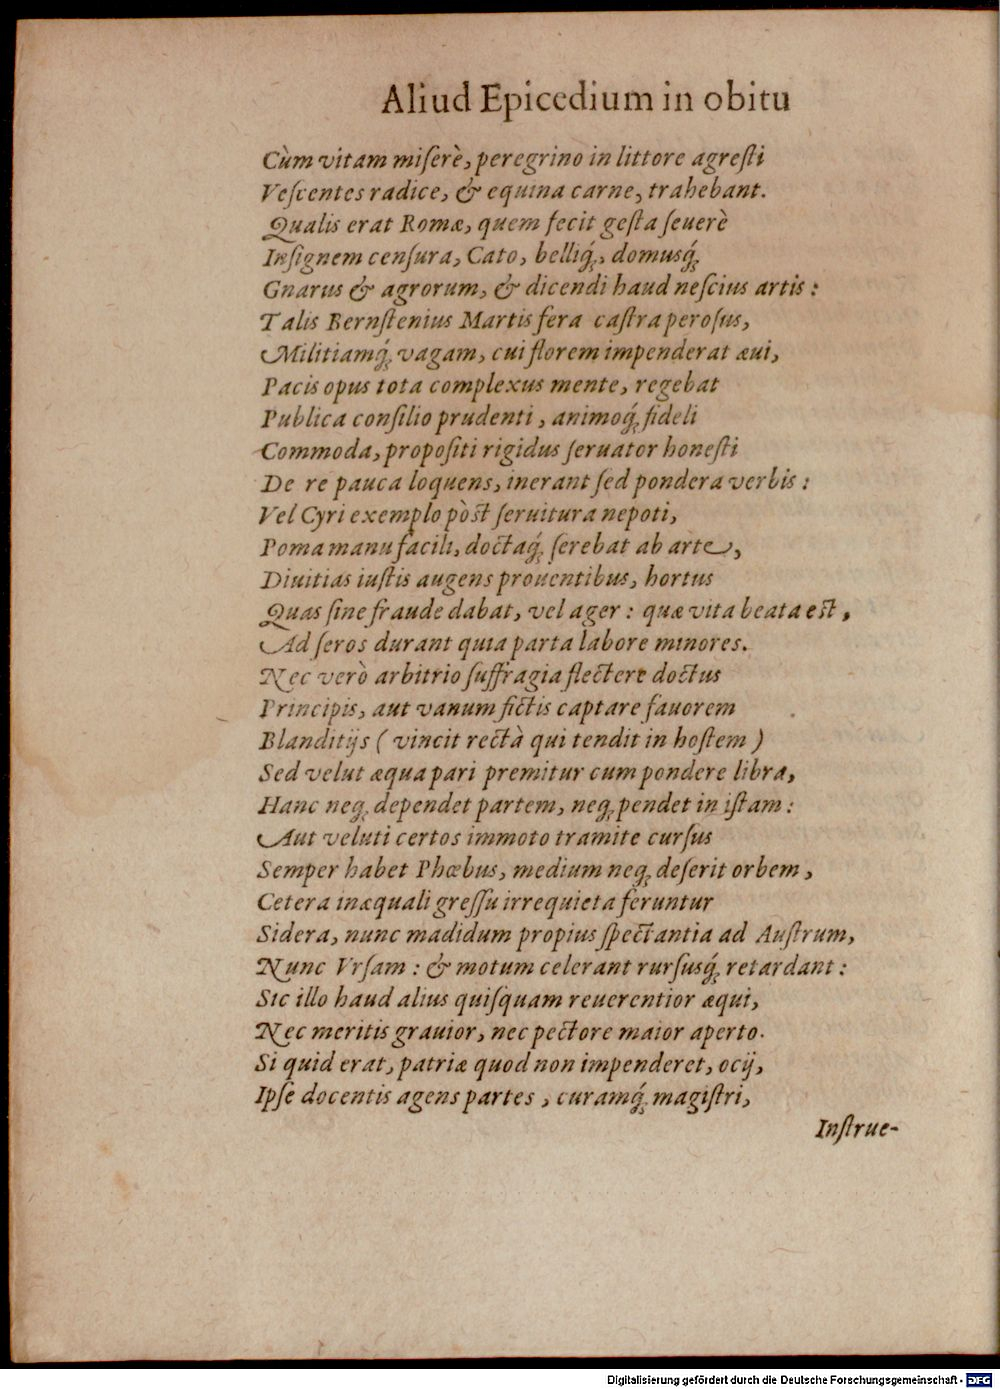 Aliud Epicedium in obitu
Cùm vitam miſerè, peregrino in littore agreſti
Veſcentes radice, & equina carne, trahebant.
Qualis erat Romæ, quem fecit geſta ſeuerè
Inſignem cenſura, Cato, belliq́;, domusq́;
Gnarus & agrorum, & dicendi haud neſcius artis:
Talis Bernſtenius Martis fera caſtra peroſus,
Militiamq́; vagam, cui florem impenderat æui,
Pacis opus tota complexus mente, regebat
Publica conſilio prudenti, animoq́; fideli
Commoda, propoſiti rigidus ſeruator honeſti
De re pauca loquens, inerant ſed pondera verbis:
Vel Cyri exemplo pòst ſeruitura nepoti,
Poma manu facili, doctaq́; ſerebat ab arte,
Diuitias iuſtis augens prouentibus, hortus
Quas ſine fraude dabat, vel ager: quæ vita beata est,
Ad ſeros durant quia parta labore minores.
Nec verò arbitrio ſuffragia flectere doctus
Principis, aut vanum fictis captare fauorem
Blanditijs ( vincit rectà qui tendit in hoſtem )
Sed velut æqua pari premitur cum pondere libra,
Hanc neq; dependet partem, neq; pendet in iſtam:
Aut veluti certos immoto tramite curſus
Semper habet Phœbus, medium neq; deſerit orbem,
Cetera inæquali greſſu irrequieta feruntur
Sidera, nunc madidum propius ſpectantia ad Auſtrum,
Nunc Vrſam: & motum celerant rurſusq́; retardant:
Sic illo haud alius quiſquam reuerentior æqui,
Nec meritis grauior, nec pectore maior aperto.
Si quid erat, patriæ quod non impenderet, ocij,
Ipſe docentis agens partes, curamq́; magiſtri,
Inſtrue-
Digitalisierung gefördert durch die Deutsche Forschungsgemeinschaft - DFG